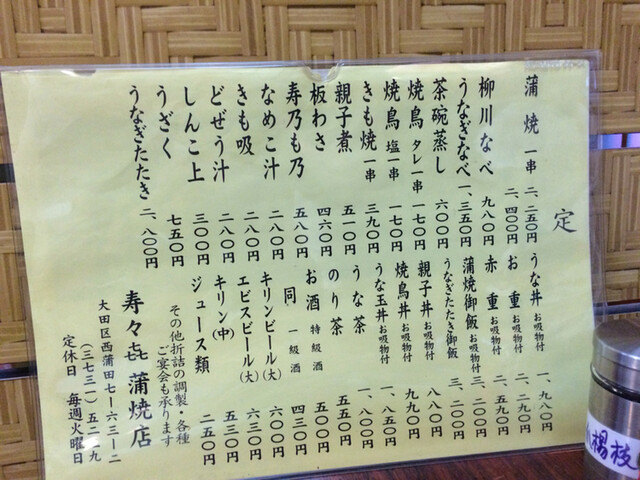 定
蒲焼 一串 二、二五〇円
二、四〇〇円
柳川なべ 九八〇円
うなぎなべ 一、三五〇円
茶碗蒸し 六〇〇円
焼鳥 タレ一串 一七〇円
焼鳥 塩一串 一七〇円
きも焼 一串 三九〇円
親子煮 五一〇円
板わさ 四六〇円
寿乃も乃 五八〇円
なめこ汁 二八〇円
きも吸 二八〇円
どぜう汁 二八〇円
しんこ上 三〇〇円
うざく 七五〇円
うなぎたたき 二、八〇〇円
うな丼 お吸物付 一、九八〇円
お重 お吸物付 二、二九〇円
赤重 お吸物付 二、五九〇円
蒲焼御飯 お吸物付 三、二〇〇円
うなぎたたき御飯 三、二〇〇円
親子丼 お吸物付 八八〇円
焼鳥丼 お吸物付 九九〇円
うな玉丼 お吸物付 一、八五〇円
うな茶 一、八〇〇円
のり茶 五五〇円
お酒 特級酒 五〇〇円
同 一級酒 四三〇円
キリンビール(大) 六〇〇円
エビスビール(大) 六三〇円
キリン(中) 五三〇円
ジュース類 二五〇円
その他折詰の調製・各種
ご宴会も承ります
寿々㐂 蒲焼店
大田区西蒲田七ー六三ー二
(三七三一)五二一九
定休日 毎週火曜日
楊枝